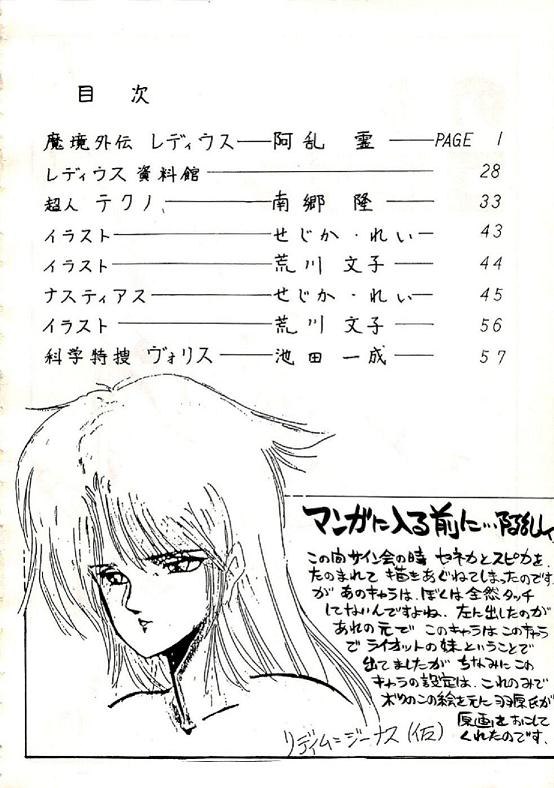 目次
魔境外伝 レディウス――阿乱 霊――PAGE 1
レディウス資料館――28
超人 テクノ、――南郷 隆――33
イラスト――せじか・れい―43
イラスト――荒川 文子――44
ナスティアス――せじか・れい―45
イラスト――荒川 文子――56
科学特捜 ヴォリス――池田 一成――57
マンガに入る前に…阿乱レイ
この向サイン会の時 セネカとスピカを
たのまれて 描きあぐねてしまったのです
が あのキャラは、ぼくは全然タッチ
してないんですよね、左に出したのが
あれの元で このキャラは このキャラ
で ライオットの妹ということで
出てましたが ちなみにこの
キャラの設定は、これのみで
ボクのこの絵を元に 羽原氏が
原画をおこして
くれたのです。
リディム=ジーナス(仮)